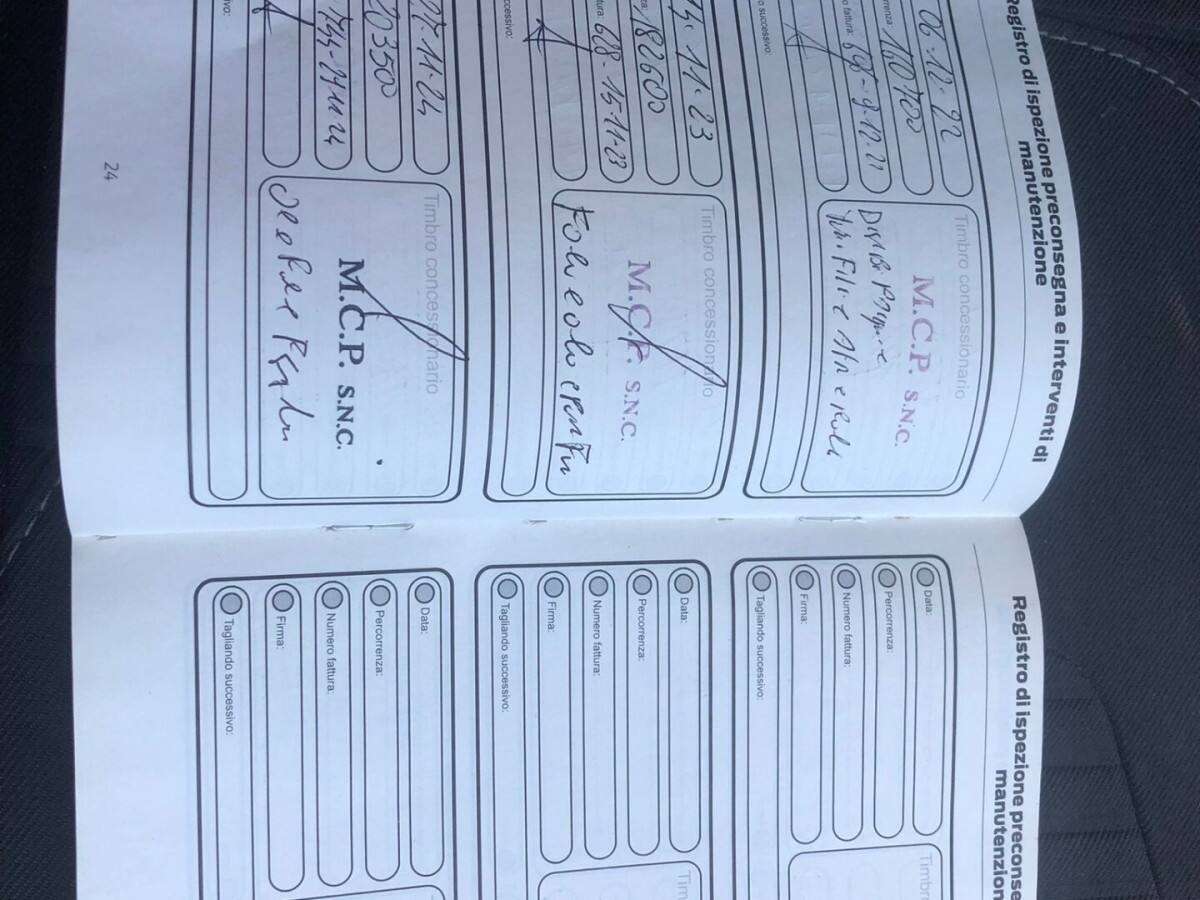 Registro di ispezione preconsegna e interventi di
manutenzione
06-12-22
rrenza: 160700
o fattura:
o successivo:
Timbro concessionario
M.C.P. S.N.C.
15-11-23
za: 182600
tura: 628-15-11-23
ccessivo:
Timbro concessionario
M.C.P. S.N.C.
27-11-24
203500
ivo:
Timbro concessionario
M.C.P. S.N.C.
24
Registro di ispezione preconse
manutenzion
Data:
Percorrenza:
Numero fattura:
Firma:
Tagliando successivo:
Timbr
Data:
Percorrenza:
Numero fattura:
Firma:
Tagliando successivo:
Tim
Data:
Percorrenza:
Numero fattura:
Firma:
Tagliando successivo: